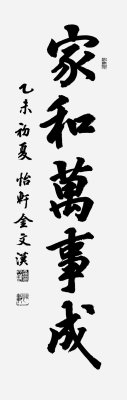 家和萬事成
乙未初夏 怡軒金文漢